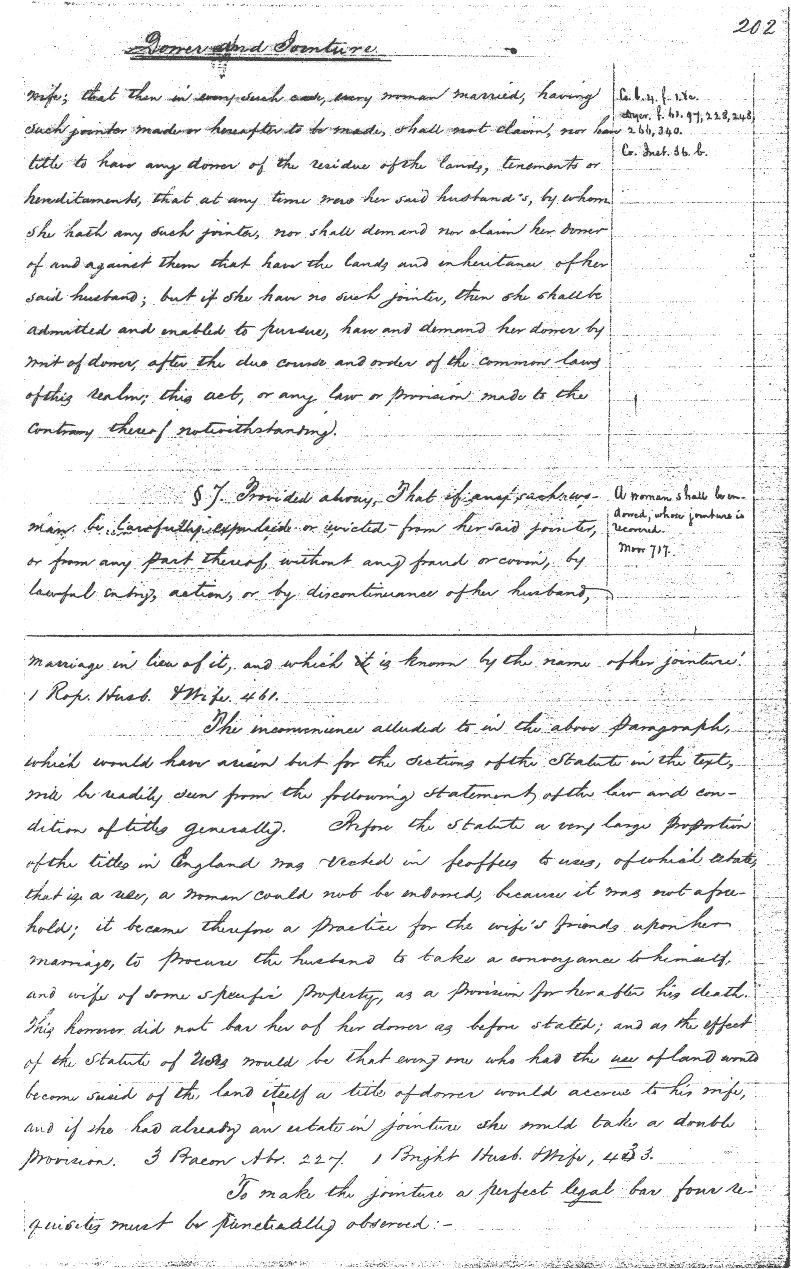 202
Dower and Jointure
wife; that then in every such case, every woman married, having
such jointer made or hereafter to be made, shall not claim, nor have
title to have any dower of the residue of the lands, tenements or
hereditaments, that at any time were her said husband's, by whom
she hath any such jointer, nor shall demand nor claim her dower
of and against them that have the lands and inheritance of her
said husband; but if she have no such jointer, then she shall be
admitted and enabled to pursue, have and demand her dower by
writ of dower, after the due course and order of the common laws
of this realm; this act, or any law or provision made to the
contrary thereof notwithstanding.
Co. b. 4. f. 1. &c.
Dyer. f. 61. 97, 228, 248,
266, 340.
Co. Inst. 36. b.
§ 7. Provided alway, That if any such wo-
man be lawfully expulsed or evicted from her said jointer,
or from any part thereof, without any fraud or covin, by
lawful entry, action, or by discontinuance of her husband,
A woman shall be en-
dowed, whose jointure is
recovered.
Moor 717.
marriage in lieu of it, and which it is known by the name of her jointure.'
1 Rop. Husb. & Wife. 461.
The inconvenience alluded to in the above Paragraph,
which would have arisen but for the sections of the Statute in the text,
will be readily seen from the following statement, of the law and con-
dition of titles generally. Before the Statute a very large proportion
of the titles in England was vested in feoffees to uses, of which estate,
that is, a use, a woman could not be endowed, because it was not a free-
hold; it became therefore a practice for the wife's friends upon her
marriage, to procure the husband to take a conveyance to himself,
and wife of some specific property, as a provision for her after his death.
This however did not bar her of her dower as before stated; and as the effect
of the Statute of Uses would be that every one who had the use of land would
become seised of the land itself a title of dower would accrue to his wife,
and if she had already an estate in jointure she would take a double
provision. 3 Bacon Abr. 227. 1 Bright Husb. & Wife, 433.
To make the jointure a perfect legal bar four re-
quisites must be punctually observed:-